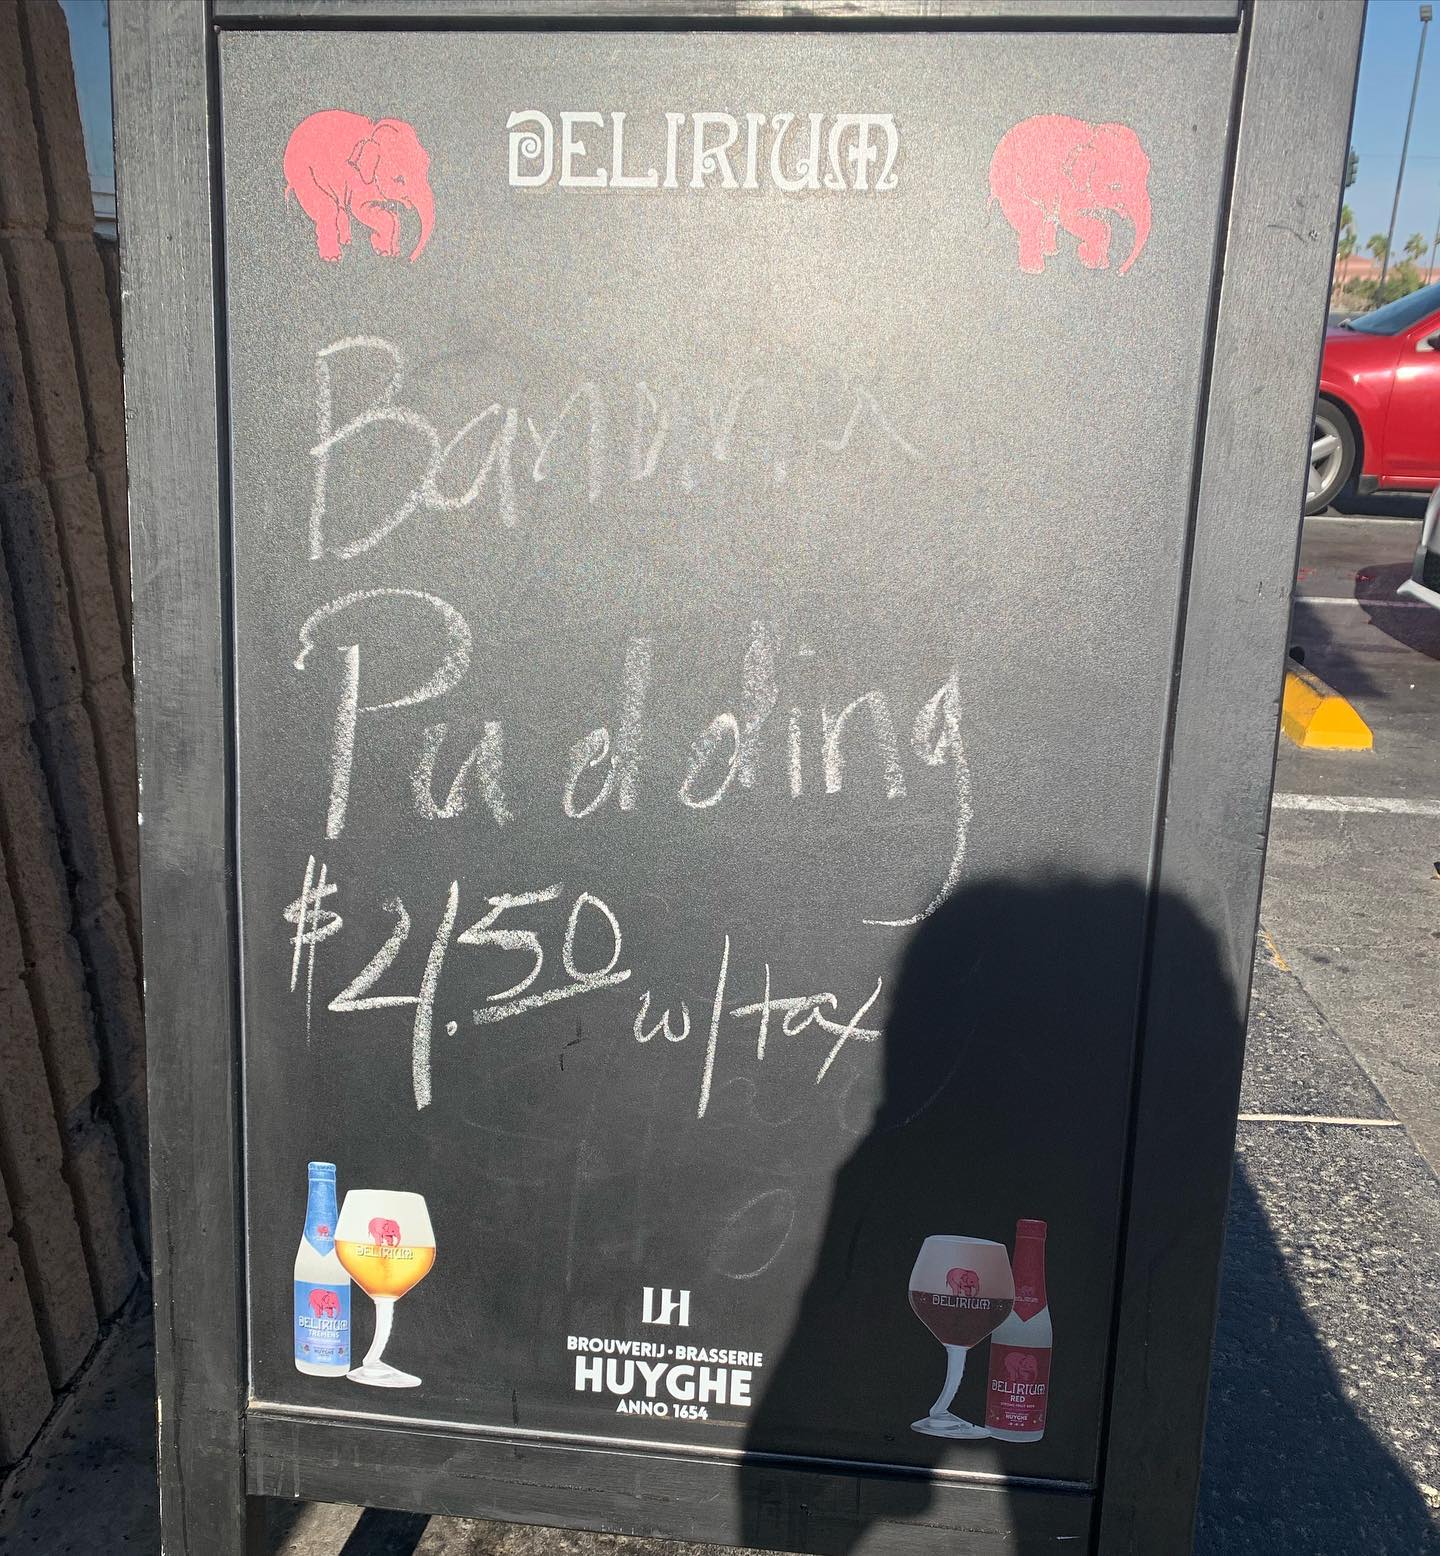 DELIRIUM
Banana
Pudding
$4.50 w/tax
DELIRIUM
DELIRIUM
TREMENS
HUYGHE
LH
BROUWERIJ·BRASSERIE
HUYGHE
ANNO 1654
DELIRIUM
DELIRIUM
RED
HUYGHE